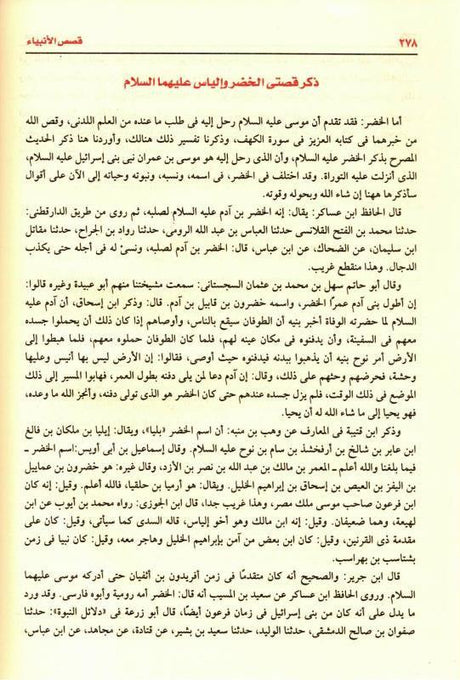 ٢٧٨
قصص الأنبياء
ذكر قصتى الخضر وإلياس عليهما السلام
أما الخضر: فقد تقدم أن موسى عليه السلام رحل إليه فى طلب ما عنده من العلم اللدنى، وقص الله
من خبرهما فى كتابه العزيز فى سورة الكهف، وذكرنا تفسير ذلك هنالك، وأوردنا هنا ذكر الحديث
المصرح بذكر الخضر عليه السلام، وأن الذى رحل إليه هو موسى بن عمران نبى بنى إسرائيل عليه السلام،
الذى أنزلت عليه التوراة. وقد اختلف فى الخضر، فى اسمه، ونسبه، ونبوته وحياته إلى الآن على أقوال
سأذكرها ههنا إن شاء الله وبحوله وقوته.
قال الحافظ ابن عساكر: يقال: إنه الخضر بن آدم عليه السلام لصلبه، ثم روى من طريق الدارقطنى:
حدثنا محمد بن الفتح القلانسى حدثنا العباس بن عبد الله الرومى، حدثنا رواد بن الجراح، حدثنا مقاتل
ابن سليمان، عن الضحاك، عن ابن عباس، قال: الخضر بن آدم لصلبه، ونسئ له فى أجله حتى يكذب
الدجال. وهذا منقطع غريب.
وقال أبو حاتم سهل بن محمد بن عثمان السجستانى: سمعت مشيختنا منهم أبو عبيدة وغيره قالوا:
إن أطول بنى آدم عمرًا الخضر، واسمه خضرون بن قابيل بن آدم. قال: وذكر ابن إسحاق، أن آدم عليه
السلام لما حضرته الوفاة أخبر بنيه أن الطوفان سيقع بالناس، وأوصاهم إذا كان ذلك أن يحملوا جسده
معهم فى السفينة، وأن يدفنوه فى مكان عينه لهم، فلما كان الطوفان حملوه معهم، فلما هبطوا إلى
الأرض أمر نوح بنيه أن يذهبوا ببدنه فيدفنوه حيث أوصى، فقالوا: إن الأرض ليس بها أنيس وعليها
وحشة، فحرضهم وحثهم على ذلك، وقال: إن آدم دعا لمن يلى دفنه بطول العمر، فهابوا المسير إلى ذلك
الموضع فى ذلك الوقت، فلم يزل جسده عندهم حتى كان الخضر هو الذى تولى دفنه، وأنجز الله ما وعده،
فهو يحيا إلى ما شاء الله له أن يحيا.
وذكر ابن قتيبة فى المعارف عن وهب بن منبه: أن اسم الخضر «بليا»، ويقال: إيليا بن ملكان بن فالغ
ابن عابر بن شالخ بن أرفخشذ بن سام بن نوح عليه السلام. وقال إسماعيل بن أبى أويس: اسم الخضر ـ
فيما بلغنا والله أعلم ـ المعمر بن مالك بن عبد الله بن نصر بن الأزد، وقال غيره: هو خضرون بن عماييل
بن اليفز بن العيص بن إسحاق بن إبراهيم الخليل. ويقال: هو أرميا بن حلقيا، فالله أعلم. وقيل: إنه كان
ابن فرعون صاحب موسى ملك مصر، وهذا غريب جدا، قال ابن الجوزى: رواه محمد بن أيوب عن ابن
لهيعة، وهما ضعيفان. وقيل: إنه ابن مالك وهو أخو إلياس، قاله السدى كما سيأتى، وقيل: كان على
مقدمة ذى القرنين، وقيل: كان ابن بعض من آمن بإبراهيم الخليل وهاجر معه، وقيل: كان نبيا فى زمن
بشتاسب بن بهراسب.
قال ابن جرير: والصحيح أنه كان متقدمًا فى زمن أفريدون بن أثفيان حتى أدركه موسى عليهما
السلام. وروى الحافظ ابن عساكر عن سعيد بن المسيب أنه قال: الخضر أمه رومية وأبوه فارسى. وقد ورد
ما يدل على أنه كان من بنى إسرائيل فى زمان فرعون أيضًا، قال أبو زرعة فى «دلائل النبوة»: حدثنا
صفوان بن صالح الدمشقى، حدثنا الوليد، حدثنا سعيد بن بشير، عن قتادة، عن مجاهد، عن ابن عباس،